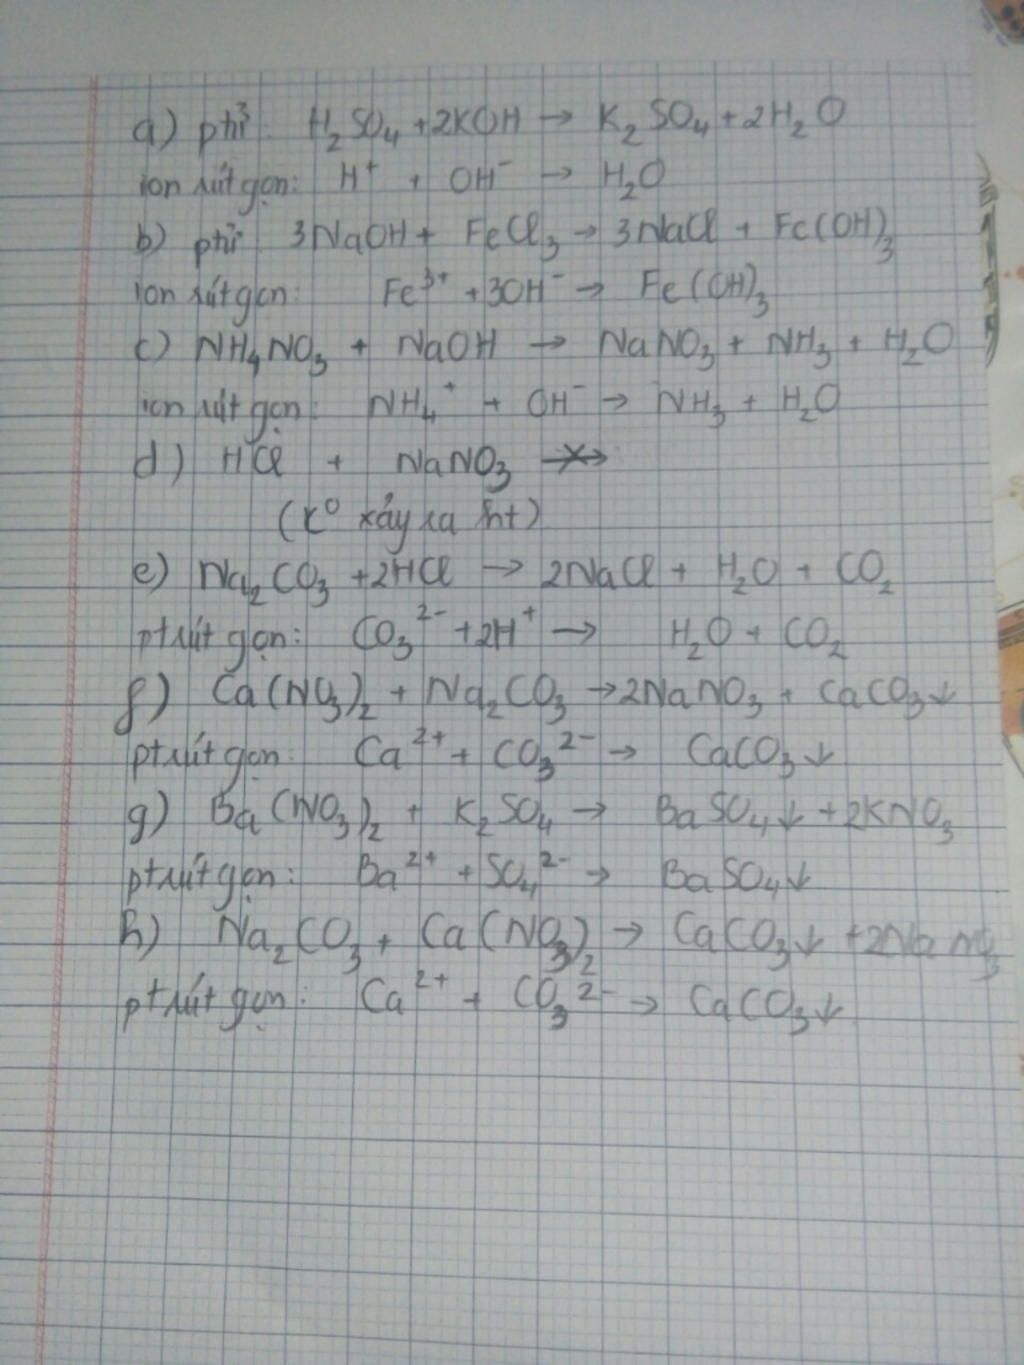 a) ptử: H₂SO₄ + 2KOH → K₂SO₄ + 2H₂O
ion rút gọn: H⁺ + OH⁻ → H₂O
b) ptử 3NaOH + FeCl₃ → 3NaCl + Fe(OH)₃
ion rút gọn: Fe³⁺ + 3OH⁻ → Fe(OH)₃
c) NH₄NO₃ + NaOH → NaNO₃ + NH₃ + H₂O
ion rút gọn: NH₄⁺ + OH⁻ → NH₃ + H₂O
d) HCl + NaNO₃ ↛
(K⁰ xảy ra)
e) Na₂CO₃ + 2HCl → 2NaCl + H₂O + CO₂
pt rút gọn: CO₃²⁻ + 2H⁺ → H₂O + CO₂
f) Ca(NO₃)₂ + Na₂CO₃ → 2NaNO₃ + CaCO₃↓
pt rút gọn: Ca²⁺ + CO₃²⁻ → CaCO₃↓
g) Ba(NO₃)₂ + K₂SO₄ → BaSO₄↓ + 2KNO₃
pt rút gọn: Ba²⁺ + SO₄²⁻ → BaSO₄↓
h) Na₂CO₃ + Ca(NO₃)₂ → CaCO₃↓ + 2NaNO₃
pt rút gọn: Ca²⁺ + CO₃²⁻ → CaCO₃↓